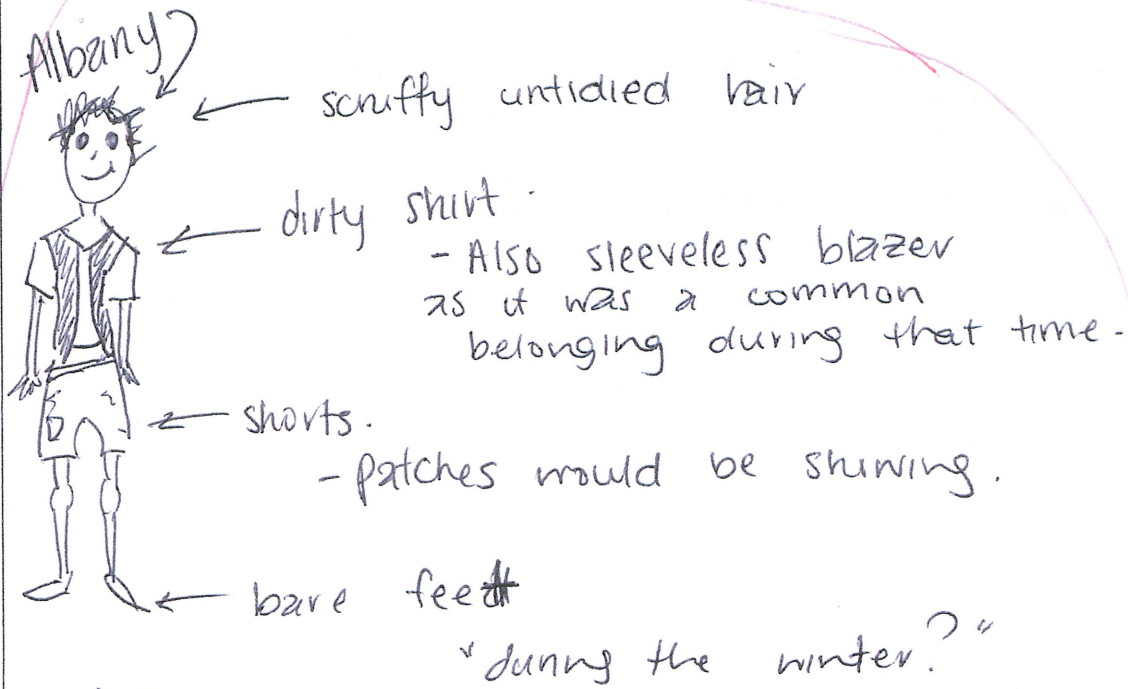 Albany
scruffy untidied hair
dirty shirt.
- Also sleeveless blazer
as it was a common
belonging during that time.
shorts.
- patches would be shining.
bare feet
"during the winter?"